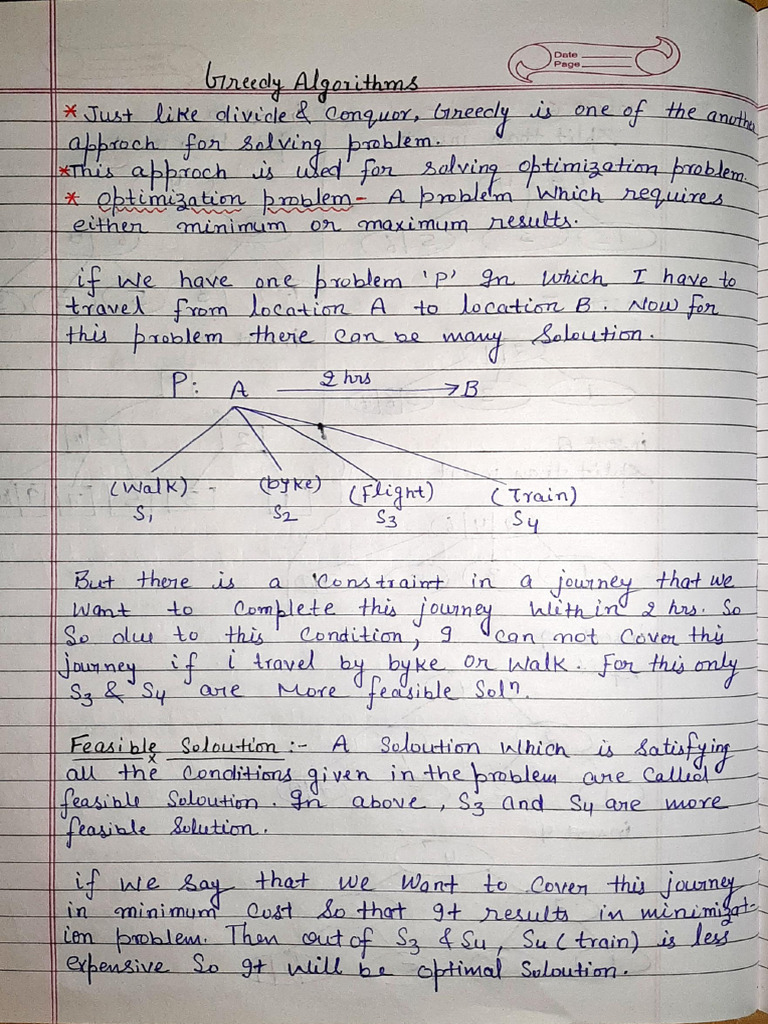 Date
Page
Greedy Algorithms
* Just like divide & Conquor, Greedy is one of the another
approch for solving problem.
*This approch is used for solving optimization problem.
* optimization problem - A problem which requires
either minimum or maximum results.
if we have one problem 'P' In which I have to
travel from location A to location B. Now for
this problem there can be many Soloution.
P: A 2 hrs B
(Walk) (byke) (Flight) (Train)
S1 S2 S3 S4
But there is a constraint in a journey that we
want to complete this journey within 2 hrs. So
So due to this condition, I can not cover this
journey if i travel by byke or walk. For this only
S3 & S4 are more feasible Solⁿ.
Feasible Soloution :- A Soloution which is satisfying
all the conditions given in the problem are called
feasible Soloution. In above, S3 and S4 are more
feasible Solution.
if we say that we want to cover this journey
in minimum cost so that It results in minimizat-
ion problem. Then out of S3 & S4, S4 (train) is less
expensive So It will be optimal Soloution.